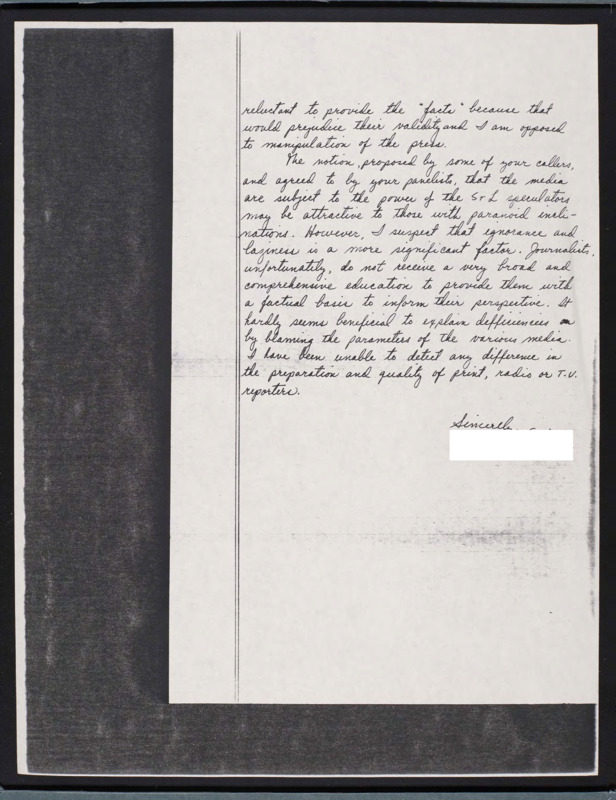 reluctant to provide the "facts" because that
would prejudice their validity and I am opposed
to manipulation of the press.
The notion, proposed by some of your callers,
and agreed to by your panelists, that the media
are subject to the power of the S+L speculators
may be attractive to those with paranoid incli-
nations. However, I suspect that ignorance and
laziness is a more significant factor. Journalists,
unfortunately, do not receive a very broad and
comprehensive education to provide them with
a factual basis to inform their perspective. It
hardly seems beneficial to explain defficiencies
by blaming the parameters of the various media.
I have been unable to detect any difference in
the preparation and quality of print, radio or T.V.
reporters.
Sincerely